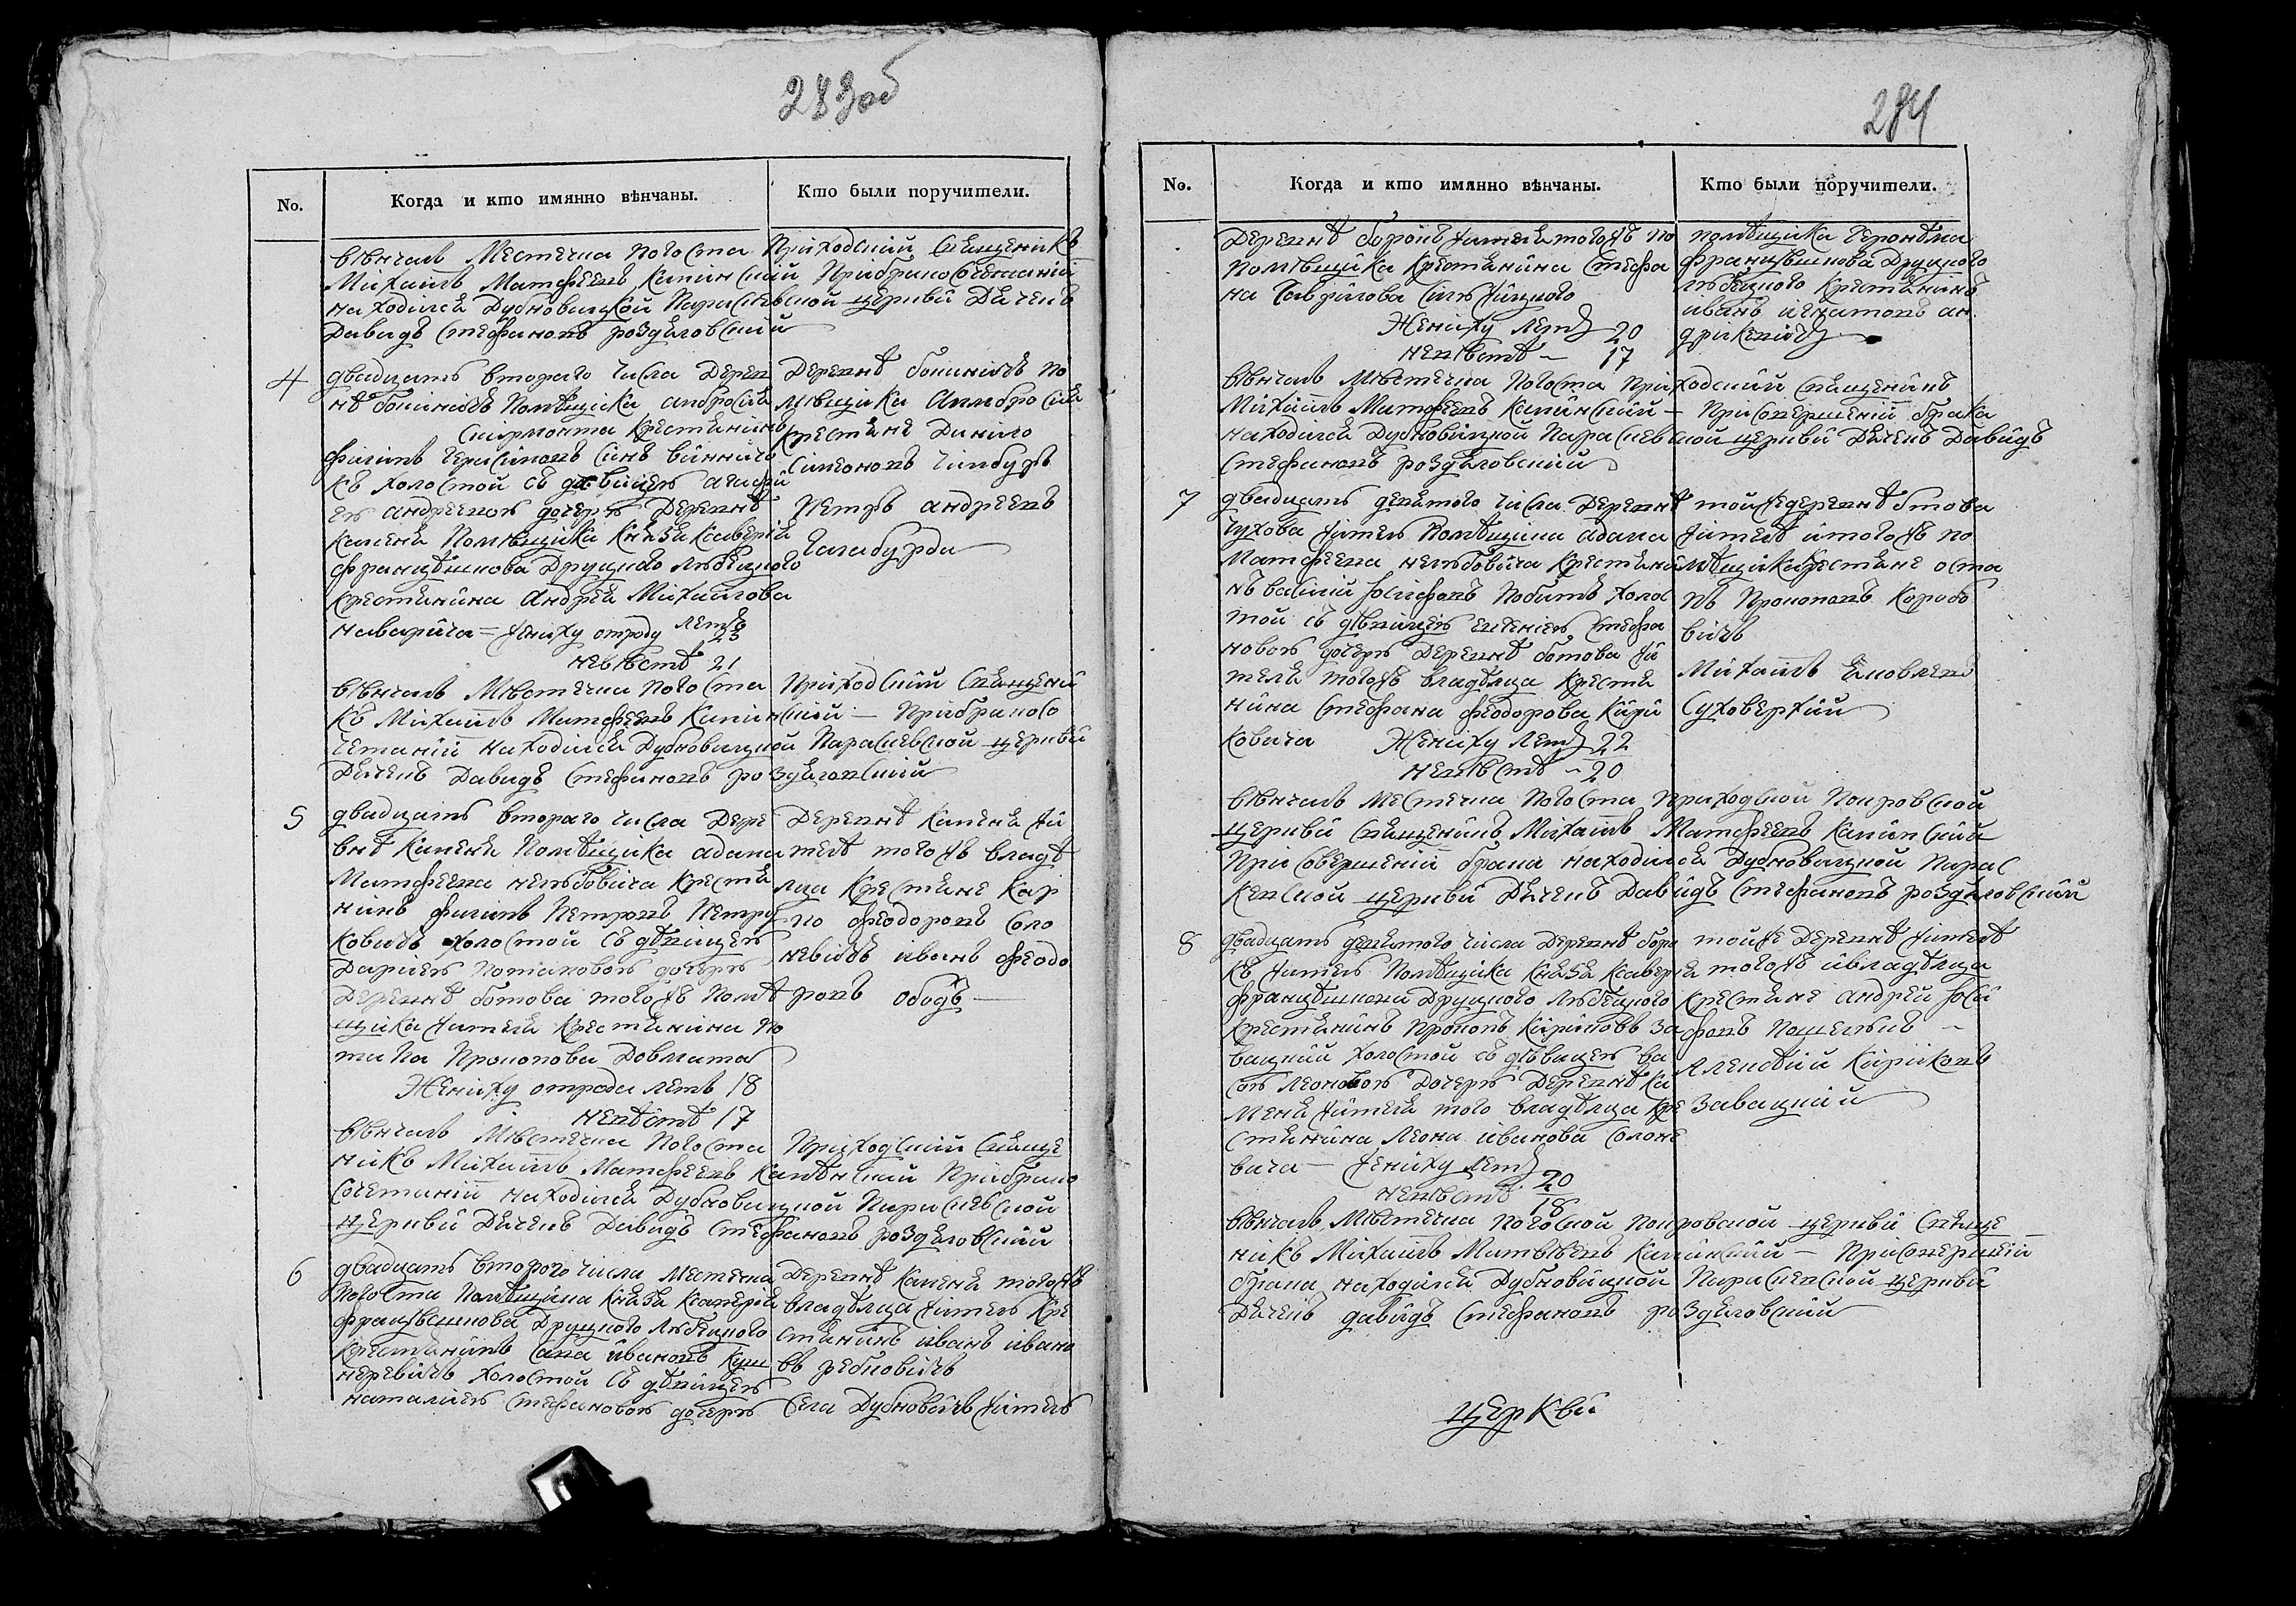 283об
No.
Когда и кто имянно вѣнчаны.
Кто были поручители.
вѣнчалъ Местечка Погоста Приходский Священникъ
Михаилъ Матфеевъ Калинский Прибракосочетании
находился Дубновицкой Параскевской церкви Дьячекъ
Давидъ Стефановъ роздяловский
4
двадцать втораго числа Дерев
нѣ Помѣщика амбросия
крестьянинъ
Филипъ сынъ
къ холостой съ дѣвицею
ею андреевою дочерю Деревнѣ
каменя Помѣщика Князя Ксаверия
Францѣшкова Друцкого Любецкого
крестьянина Андрея Михайлова
Жениху отроду летъ 23
невѣстѣ 21
Деревнѣ по
мѣщика Амбросия
крестьяне Данило
Симеоновъ
Петръ андреевъ
Галабурда
вѣнчалъ Мѣстечка Погоста Приходский Священни
къ Михаилъ Матфеевъ Калинский — Прибракосо
четании находился Дубновицкой Параскевской церкви
Дьячекъ Давидъ Стефановъ роздяловский
5
двадцать втораго числа Дере
внѣ Каменя Помѣщика адама
Матфеева крестья
нинъ филипъ Петровъ Петру
ковичъ холостой съ дѣвицею
Дариею Потаповою дочерю
Деревнѣ ботова того жъ Помѣ
щика жителя крестьянина По
тапа Прокопова Довмата
Жениху отрода летъ 18
невѣстѣ 17
Деревнѣ Каменя жи
телѣ того жъ владѣ
лца Крестьяне Кар
по Феодоровъ Соло
невичъ иванъ Феодо
ровъ
вѣнчалъ Мѣстечка Погоста Приходский Свяще
никъ Михаилъ Матфеевъ Калинский Прибрако
сочетании находился Дубновицкой Параскевской
церкви Дьячекъ Давидъ Стефановъ роздяловский
6
двадцать второго числа Местечка
Погоста Помѣщика Князя Ксаверия
францѣшкова Друцкого Любецкого
крестьянинъ Сава ивановъ Куш
неревичъ холостой съ дѣвицею
наталиею Стефановою дочерю
Деревнѣ Каменя того жъ
владѣлца житель Кре
стьянинъ иванъ ивано
въ
Села Дубновичъ житель
284
No.
Когда и кто имянно вѣнчаны.
Кто были поручители.
Деревнѣ жителя того жъ по
помѣщика Крестьянина Стефа
на Гаврилова
Жениху летъ 20
невѣстѣ — 17
помѣщика
францѣшкова Друцкого
любецкого крестьянинъ
иванъ игнатовъ ан
дрикевичъ
вѣнчалъ Мѣстечка Погоста Приходский Священникъ
Михаилъ Матфеевъ Калинский — При совершении брака
находился Дубновицкой Параскевской церкви Дьячекъ Давидъ
Стефановъ роздяловский
7
двадцать девятого числа Деревнѣ
житель Помѣщика адама
Матфеева крестьяни
нъ василий Иосифовъ холос
той съ дѣвицею евгениею Стефа
новою дочерю Деревнѣ ботова жи
теля того жъ владѣлца крестья
нина Стефана Феодорова Кири
ковича Жениху летъ 22
невѣстѣ — 20
той же деревнѣ ботова
жителѣ и того жъ по
мѣщика крестьяне оста
пъ Прокоповъ Коробо
вичъ
Михаилъ Яковлевъ
Суховерхий
вѣнчалъ местечка Погоста Приходской Покровской
церкви Священникъ Михаилъ Матфеевъ Калинский
При совершении брака находился Дубновицкой Парас
кевской церкви Дьячекъ Давидъ Стефановъ роздяловский
8
двадцать девятого числа Деревнѣ боро
къ житель Помѣщика Князя Ксаверия
францѣшкова Друцкого Любецкого
крестьянинъ Прокопъ Кириковъ за
вацкий холостой съ дѣвицею ва
сою Леоновою Дочерю Деревнѣ ка
меня жителя того владѣлца кре
стьянина Леона иванова Солоне
вича — Жениху летъ 20
невѣстѣ 18
той же Деревнѣ жителѣ
того жъ и владѣлца
крестьяне андрей Иоси
фовъ
Алексѣй Кириковъ
Завацкий
вѣнчалъ Мѣстечка погоской покровской церкви Свяще
никъ Михаилъ Матвѣевъ Калинский — При совершении
брака находился Дубновицкой Параскевской церкви
Дьячекъ давидъ Стефановъ роздяловский
церкви